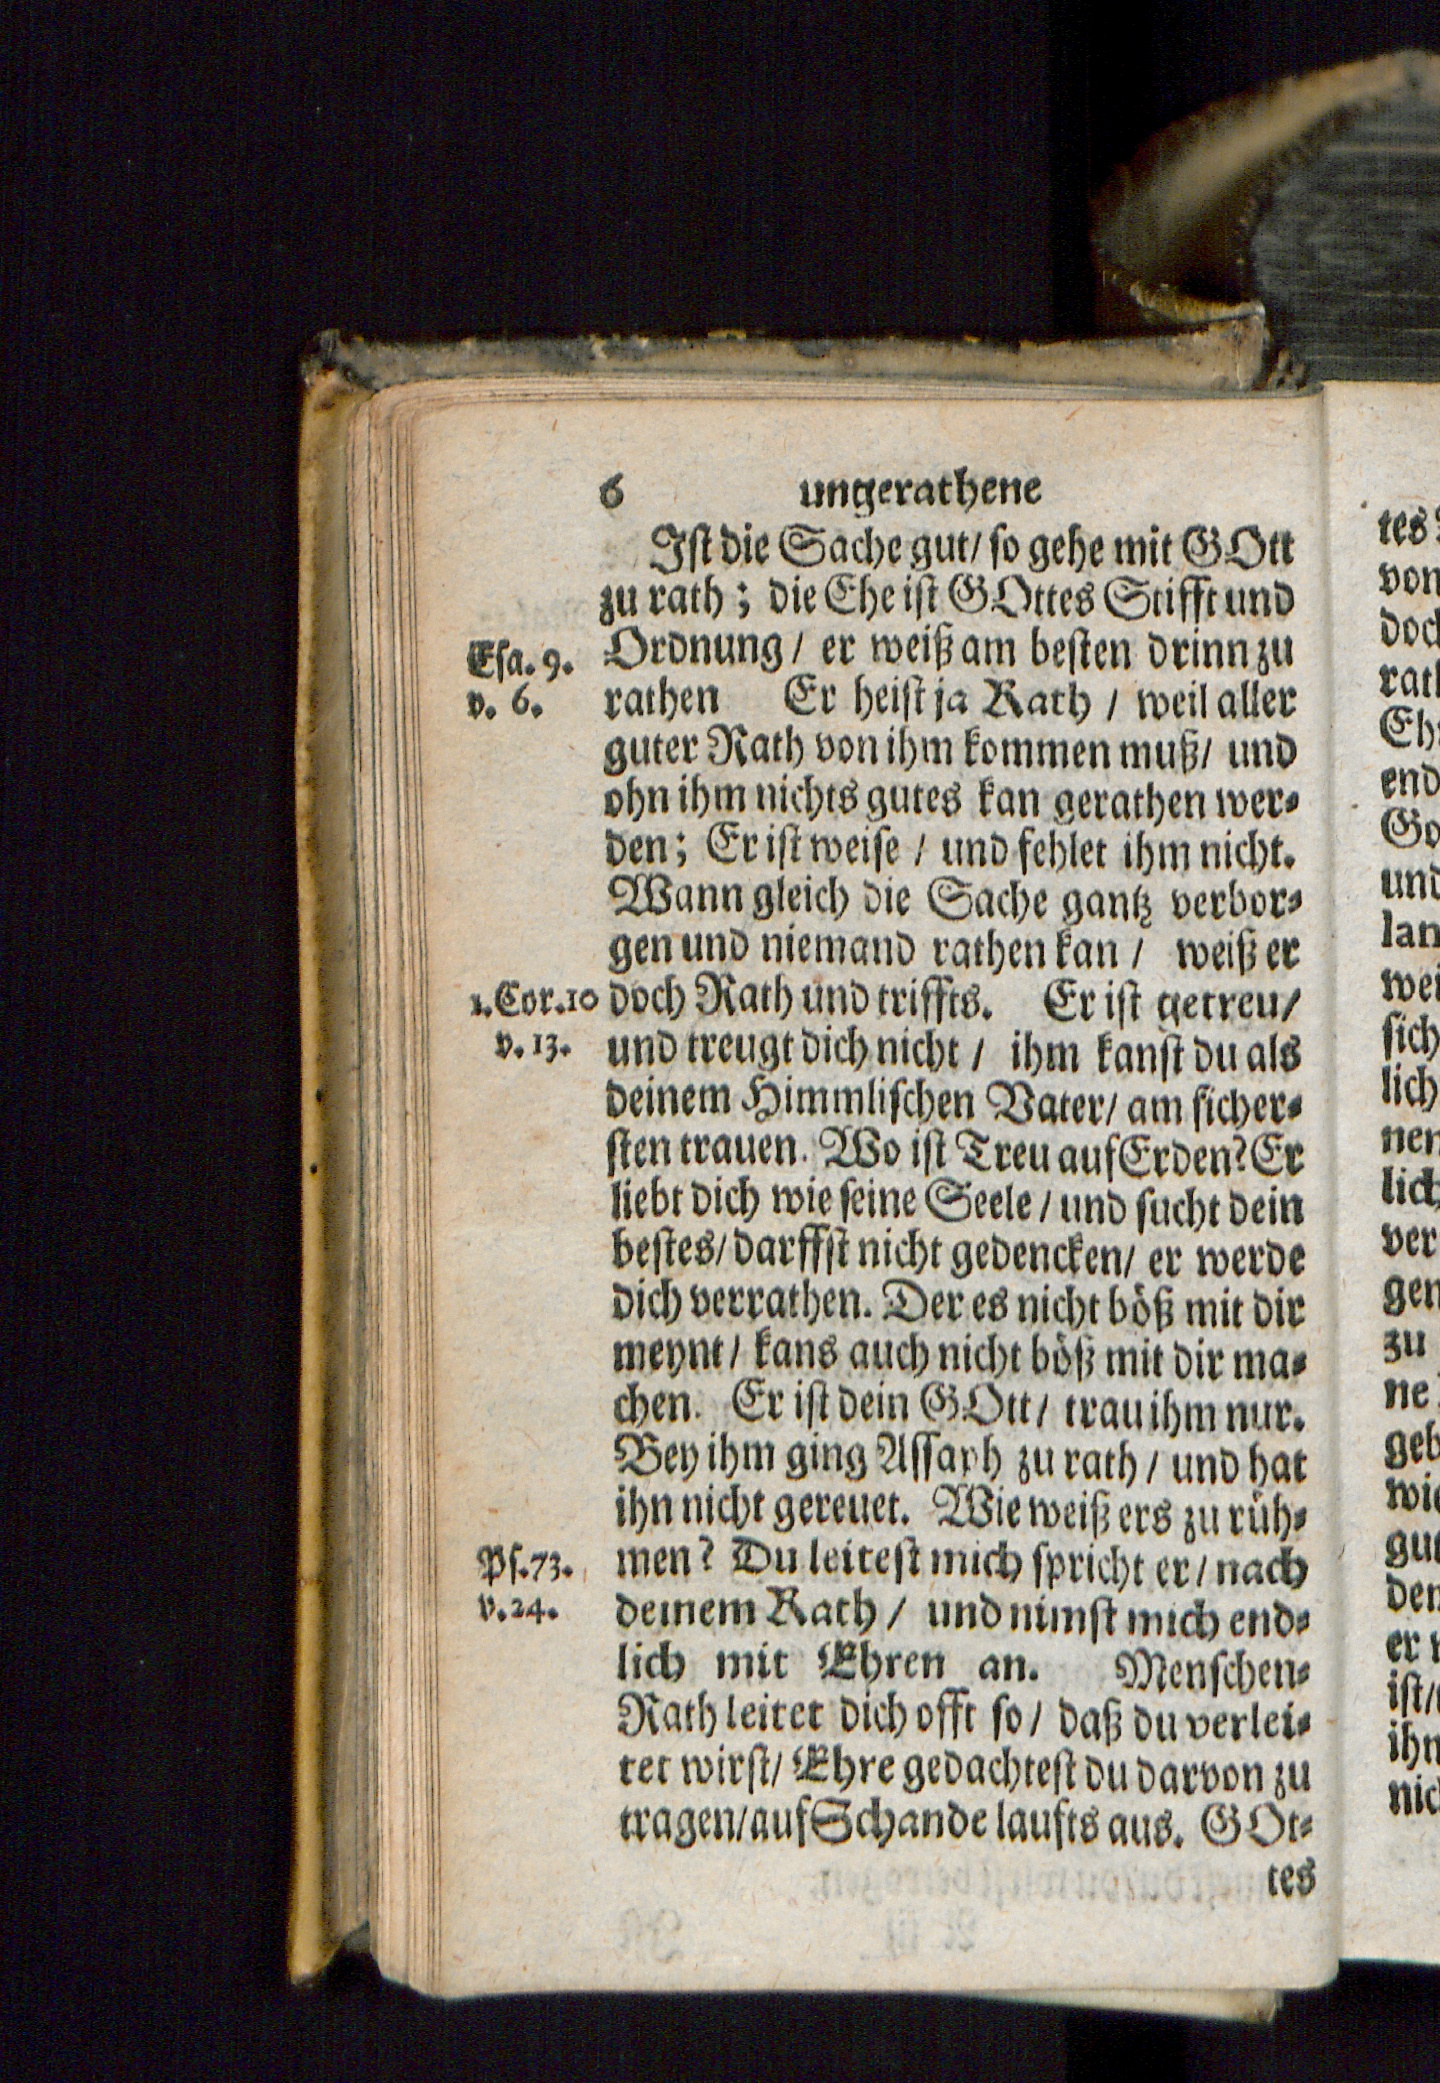 6 ungerathene
Ist die Sache gut/ so gehe mit GOtt
zu rath; die Ehe ist GOttes Stifft und
Ordnung/ er weiß am besten drinn zu
Esa. 9.
rathen Er heist ja Rath / weil aller
v. 6.
guter Rath von ihm kommen muß/ und
ohn ihm nichts gutes kan gerathen wer-
den; Er ist weise / und fehlet ihm nicht.
Wann gleich die Sache gantz verbor-
gen und niemand rathen kan / weiß er
1. Cor. 10
doch Rath und triffts. Er ist getreu/
v. 13.
und treugt dich nicht / ihm kanst du als
deinem Himmlischen Vater/ am sicher-
sten trauen. Wo ist Treu auf Erden? Er
liebt dich wie seine Seele / und sucht dein
bestes/ darffst nicht gedencken/ er werde
dich verrathen. Der es nicht böß mit dir
meynt / kans auch nicht böß mit dir ma-
chen. Er ist dein GOtt/ trau ihm nur.
Bey ihm ging Assaph zu rath / und hat
ihn nicht gereuet. Wie weiß ers zu rüh-
Ps. 73.
men? Du leitest mich spricht er / nach
v. 24.
deinem Rath / und nimst mich end-
lich mit Ehren an. Menschen-
Rath leitet dich offt so / daß du verlei-
tet wirst/ Ehre gedachtest du darvon zu
tragen/ auf Schande laufts aus. GOt-
tes
tes
von
doch
rath
Eh
end
Go
und
lan
wei
sich
lich
nen
lich
ver
gen
zu
ne
geb
wie
gut
den
er
ist/
ihn
nic